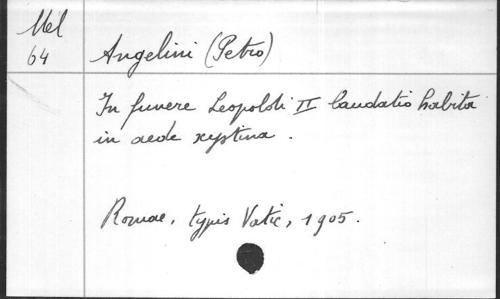 Mel
64
Angelini (Petro)
In funere Leopoldi II laudatio habita
in aede xystina.
Romae, typis Vatic, 1905.